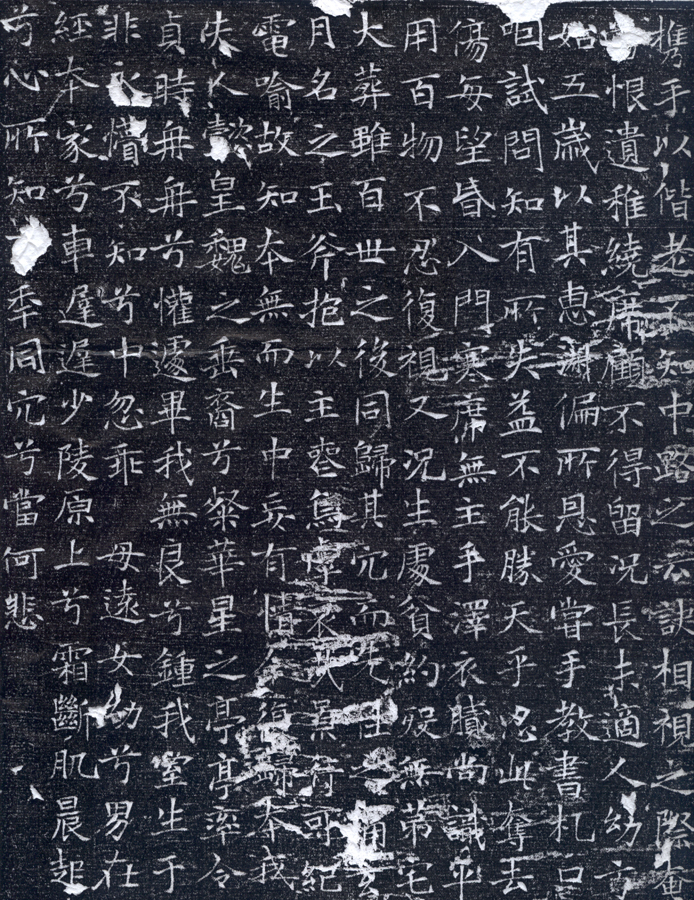 携手以偕老不知中路之云訣相視之際奄
恨遺稚繞席顧不得留況長未適人幼方
始五歲以其惠淑偏所恩愛嘗手教書札口
咽試問知有所失益不能勝天乎忍此奪去
傷每望昏入門寒席無主手澤衣膩尚識平
用百物不忍復視又況生處貧約歿無第宅
大葬雖百世之後同歸其穴而先往之痛玄
月名之玉斧抱以主喪烏虖哀哉景行可紀
電喻故知本無而生中妄有情今復歸本我
夫人懿皇魏之垂裔兮粲華星之亭亭率令
貞時冉冉兮懽遽畢我無良兮鍾我室生于
非永懵不知兮中忽乖 母遠女幼兮男在
經本家兮車遲遲少陵原上兮霜斷肌晨起
兮心所知百年同穴兮當何悲